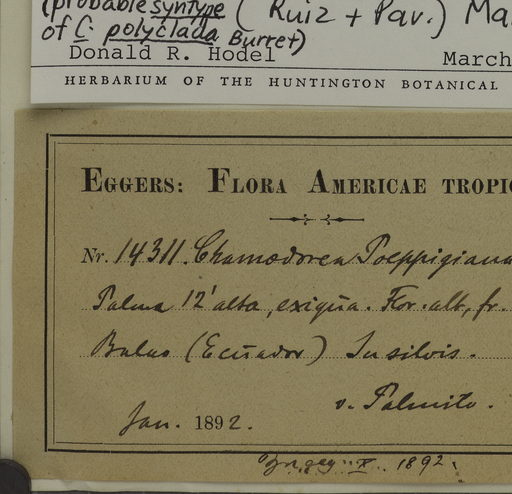 (probable syntype (Ruiz + Pav.) Ma
of C. polyclada Burret)
Donald R. Hodel March
HERBARIUM OF THE HUNTINGTON BOTANICAL
EGGERS: FLORA AMERICAE TROPIC
Nr. 14311. Chamædorea Poeppigiana
Palma 12' alta, exigua. Flor. alb, fr.
Balao (Ecuador) In silvis.
v. Palmito.
Jan. 1892.
X. 1892.